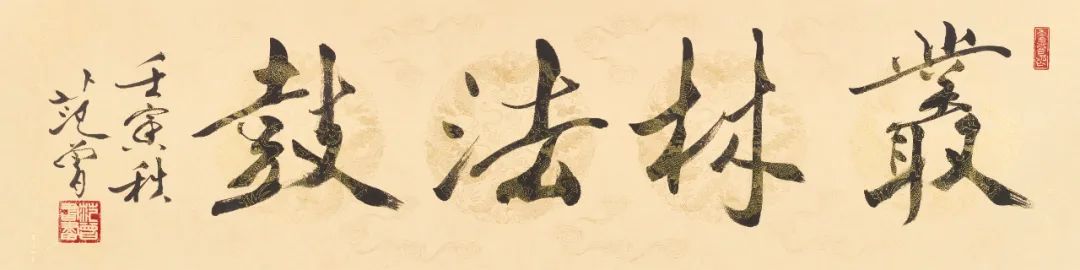 叢林法鼓
壬寅秋
范曾